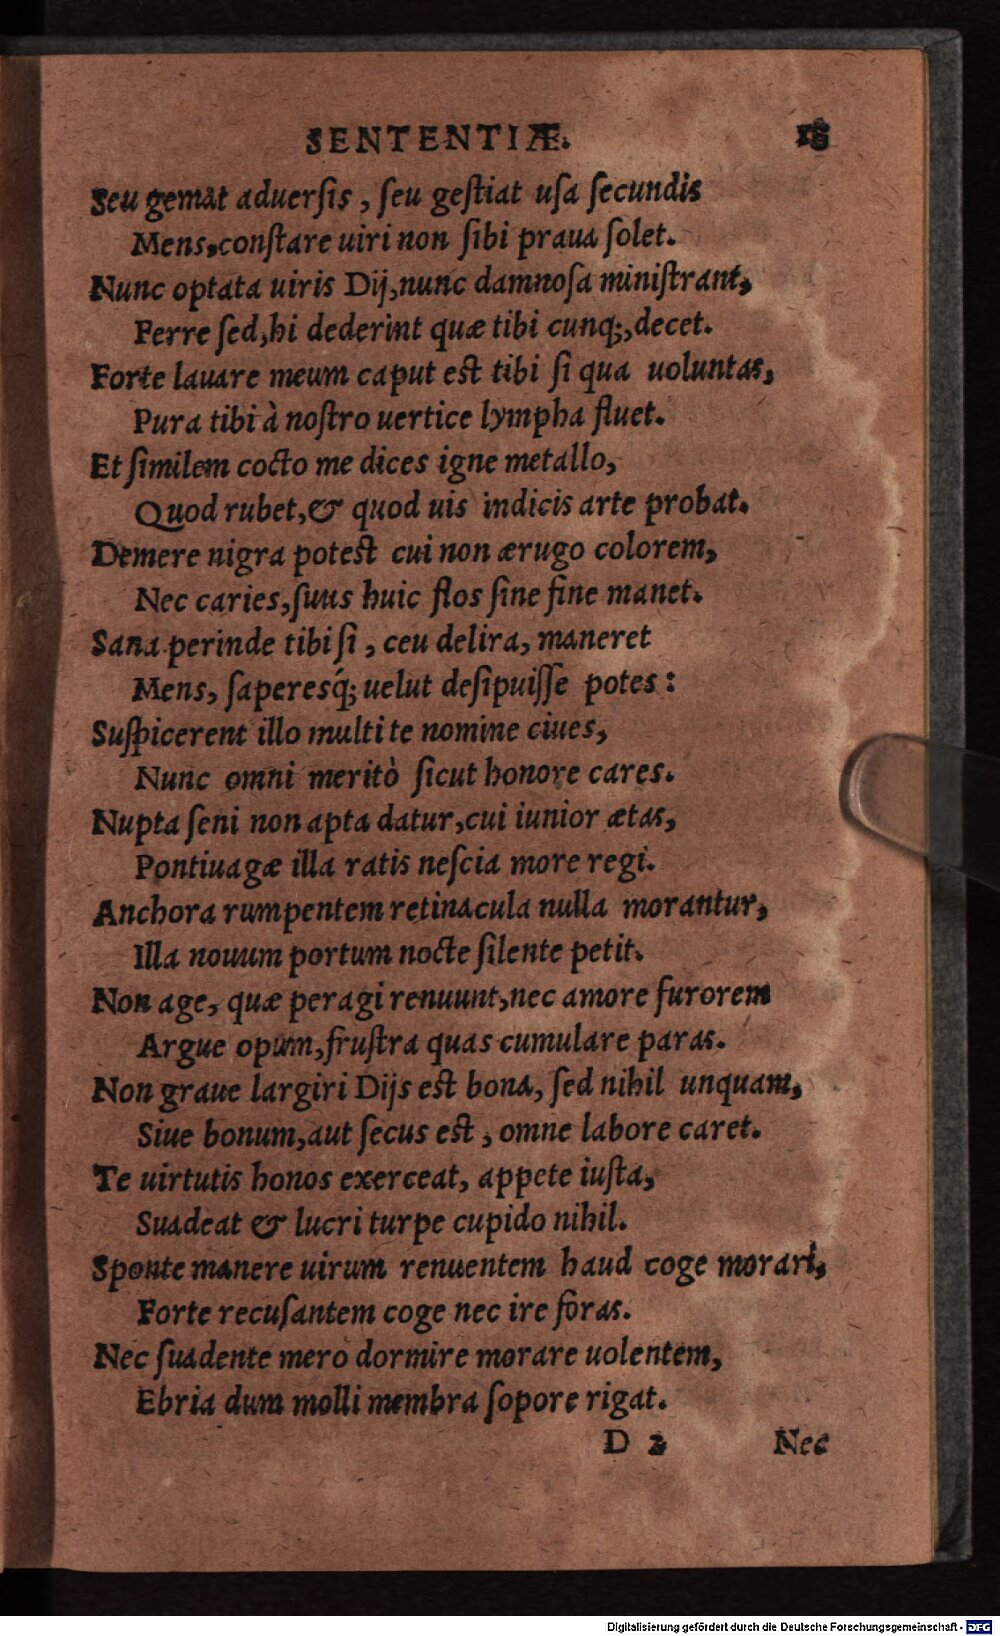 SENTENTIÆ. 18
Seu gemat aduerſis, ſeu geſtiat uſa ſecundis
Mens, conſtare uiri non ſibi praua ſolet.
Nunc optata uiris Dij, nunc damnoſa miniſtrant,
Ferre ſed, hi dederint quæ tibi cunq;, decet.
Forte lauare meum caput est tibi ſi qua uoluntas,
Pura tibi à noſtro uertice lympha fluet.
Et ſimilem cocto me dices igne metallo,
Quod rubet, & quod uis indicis arte probat.
Demere nigra potest cui non ærugo colorem,
Nec caries, ſuus huic flos ſine fine manet.
Sana perinde tibi ſi, ceu delira, maneret
Mens, ſaperesq́; uelut deſipuiſſe potes:
Suſpicerent illo multi te nomine ciues,
Nunc omni meritò ſicut honore cares.
Nupta ſeni non apta datur, cui iunior ætas,
Pontiuagæ illa ratis neſcia more regi.
Anchora rumpentem retinacula nulla morantur,
Illa nouum portum nocte ſilente petit.
Non age, quæ peragi renuunt, nec amore furorem
Argue opum, fruſtra quas cumulare paras.
Non graue largiri Dijs est bona, ſed nihil unquam,
Siue bonum, aut ſecus est, omne labore caret.
Te uirtutis honos exerceat, appete iuſta,
Suadeat & lucri turpe cupido nihil.
Sponte manere uirum renuentem haud coge morari,
Forte recuſantem coge nec ire foras.
Nec ſuadente mero dormire morare uolentem,
Ebria dum molli membra ſopore rigat.
D 2 Nec
Digitalisierung gefördert durch die Deutsche Forschungsgemeinschaft - DFG